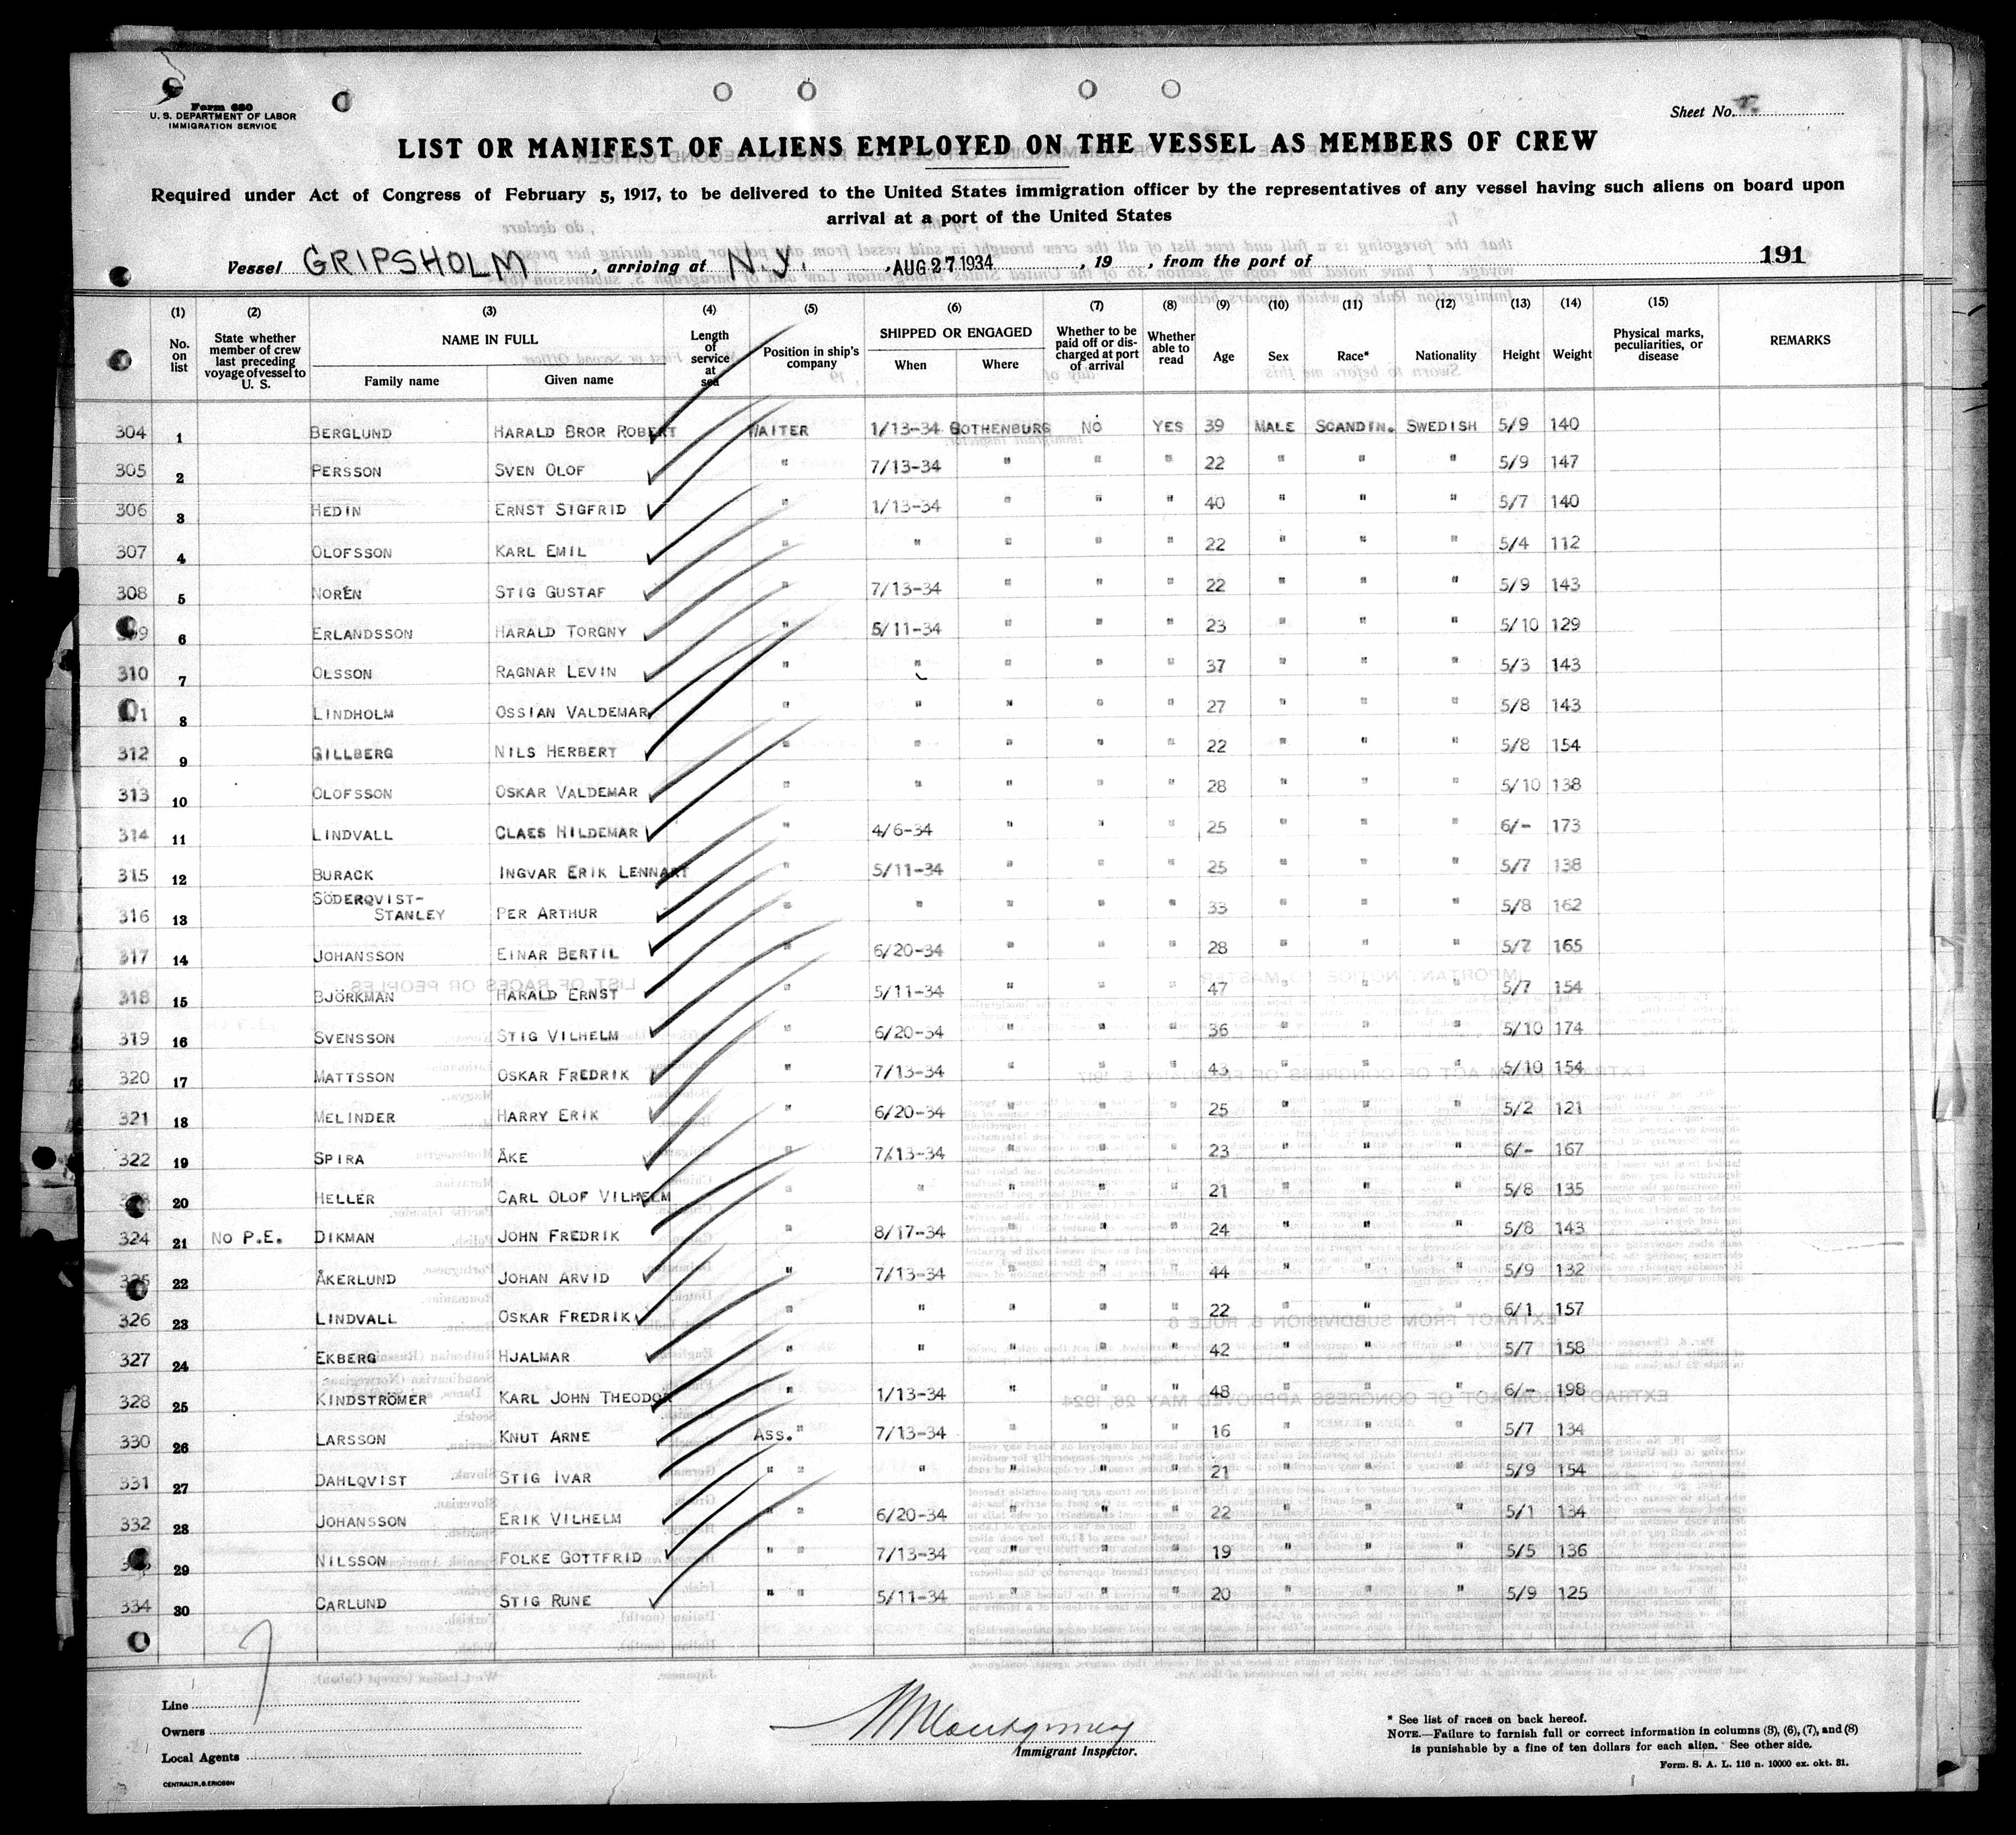 Form 680
U. S. DEPARTMENT OF LABOR
IMMIGRATION SERVICE
Sheet No.
LIST OR MANIFEST OF ALIENS EMPLOYED ON THE VESSEL AS MEMBERS OF CREW
Required under Act of Congress of February 5, 1917, to be delivered to the United States immigration officer by the representatives of any vessel having such aliens on board upon
arrival at a port of the United States
Vessel GRIPSHOLM, arriving at N.Y., AUG 27 1934, 19 , from the port of 191
(1) (2) (3) (4) (5) (6) (7) (8) (9) (10) (11) (12) (13) (14) (15)
No. on list State whether member of crew last preceding voyage of vessel to U. S. NAME IN FULL Family name Given name Length of service at sea Position in ship's company SHIPPED OR ENGAGED When Where Whether to be paid off or discharged at port of arrival Whether able to read Age Sex Race* Nationality Height Weight Physical marks, peculiarities, or disease REMARKS
304 1 BERGLUND HARALD BROR ROBERT WAITER 1/13-34 GOTHENBURG NO YES 39 MALE SCANDIN. SWEDISH 5/9 140
305 2 PERSSON SVEN OLOF " 7/13-34 " " " 22 " " " 5/9 147
306 3 HEDIN ERNST SIGFRID " 1/13-34 " " " 40 " " " 5/7 140
307 4 OLOFSSON KARL EMIL " " " " " 22 " " " 5/4 112
308 5 NORÉN STIG GUSTAF " 7/13-34 " " " 22 " " " 5/9 143
6 ERLANDSSON HARALD TORGNY " 5/11-34 " " " 23 " " " 5/10 129
310 7 OLSSON RAGNAR LEVIN " " " " " 37 " " " 5/3 143
8 LINDHOLM OSSIAN VALDEMAR " " " " " 27 " " " 5/8 143
312 9 GILLBERG NILS HERBERT " " " " " 22 " " " 5/8 154
313 10 OLOFSSON OSKAR VALDEMAR " " " " " 28 " " " 5/10 138
314 11 LINDVALL CLAES HILDEMAR " 4/6-34 " " " 25 " " " 6/- 173
315 12 BURACK INGVAR ERIK LENNART " 5/11-34 " " " 25 " " " 5/7 138
316 13 SÖDERQVIST-STANLEY PER ARTHUR " " " " " 33 " " " 5/8 162
317 14 JOHANSSON EINAR BERTIL " 6/20-34 " " " 28 " " " 5/7 165
318 15 BJÖRKMAN HARALD ERNST " 5/11-34 " " " 47 " " " 5/7 154
319 16 SVENSSON STIG VILHELM " 6/20-34 " " " 36 " " " 5/10 174
320 17 MATTSSON OSKAR FREDRIK " 7/13-34 " " " 43 " " " 5/10 154
321 18 MELINDER HARRY ERIK " 6/20-34 " " " 25 " " " 5/2 121
322 19 SPIRA ÅKE " 7/13-34 " " " 23 " " " 6/- 167
20 HELLER CARL OLOF VILHELM " " " " " 21 " " " 5/8 135
324 21 NO P.E. DIKMAN JOHN FREDRIK " 8/17-34 " " " 24 " " " 5/8 143
22 ÅKERLUND JOHAN ARVID " 7/13-34 " " " 44 " " " 5/9 132
326 23 LINDVALL OSKAR FREDRIK " " " " " 22 " " " 6/1 157
327 24 EKBERG HJALMAR " " " " " 42 " " " 5/7 158
328 25 KINDSTRÖMER KARL JOHN THEODOR " 1/13-34 " " " 48 " " " 6/- 198
330 26 LARSSON KNUT ARNE ASS. " 7/13-34 " " " 16 " " " 5/7 134
331 27 DAHLQVIST STIG IVAR " " " " " " 21 " " " 5/9 154
332 28 JOHANSSON ERIK VILHELM " " 6/20-34 " " " 22 " " " 5/1 134
29 NILSSON FOLKE GOTTFRID " " 7/13-34 " " " 19 " " " 5/5 136
334 30 CARLUND STIG RUNE " " 5/11-34 " " " 20 " " " 5/9 125
Line
Owners
Local Agents
CENTRALTR. G. ERICSON
Montgomery
Immigrant Inspector.
* See list of races on back hereof.
NOTE.—Failure to furnish full or correct information in columns (3), (6), (7), and (8)
is punishable by a fine of ten dollars for each alien. See other side.
Form. S. A. L. 116 n. 10000 ex. okt. 31.